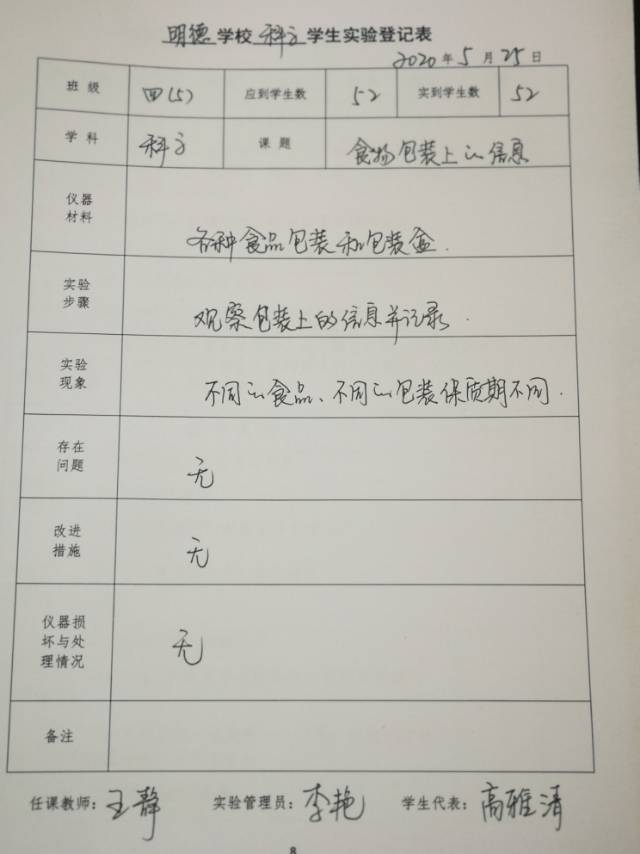 明德学校科学学生实验登记表
2020年5月25日
班级 四(5) 应到学生数 52 实到学生数 52
学科 科学 课题 食物包装上的信息
仪器
材料
各种食品包装和包装盒.
实验
步骤
观察包装上的信息并记录.
实验
现象
不同的食品、不同的包装保质期不同.
存在
问题
无
改进
措施
无
仪器损
坏与处
理情况
无
备注
任课教师：王静 实验管理员：李艳 学生代表：高雅清
8